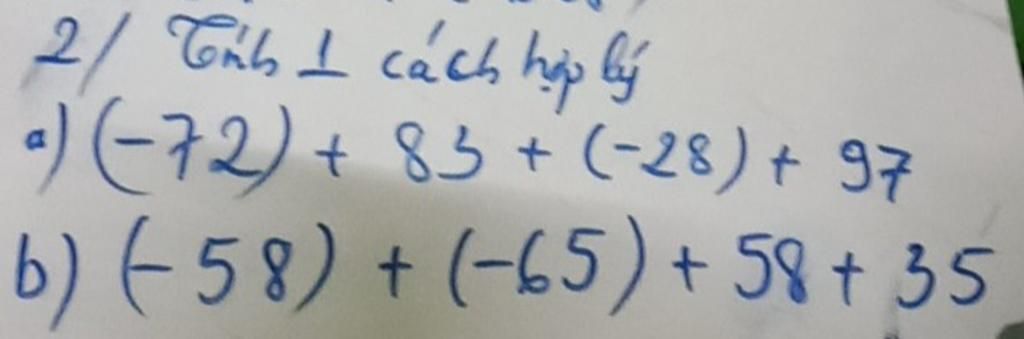 2/ Tính 1 cách hợp lý
a) (-72) + 83 + (-28) + 97
b) (-58) + (-65) + 58 + 35